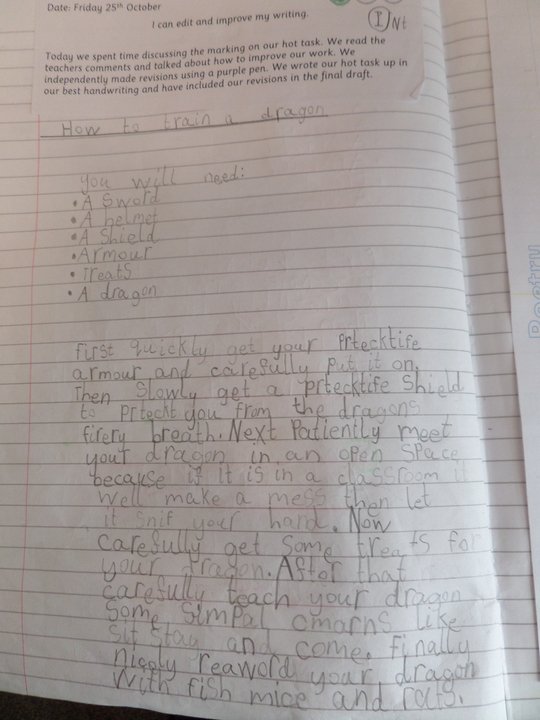 Date: Friday 25th October
I can edit and improve my writing.
I Nt
Today we spent time discussing the marking on our hot task. We read the
teachers comments and talked about how to improve our work. We
independently made revisions using a purple pen. We wrote our hot task up in
our best handwriting and have included our revisions in the final draft.
How to train a dragon
you will need:
• A Sword
• A helmet
• A Shield
• Armour
• Treats
• A dragon
first quickly get your Prtecktife
armour and carefully put it on,
Then Slowly get a prtecktife Shield
to Prteckt you from the dragons
firery breath. Next Patiently meet
your dragon in an open Space
because if it is in a classroom it
well make a mess then let
it snif your hand. Now
carefully get Some treats for
your dragon. After that
carefully teach your dragon
Some Simpal cmarns like
Sit Stay and come. Finally
nicply reaword your dragon
With fish mice and rats.
Poetry